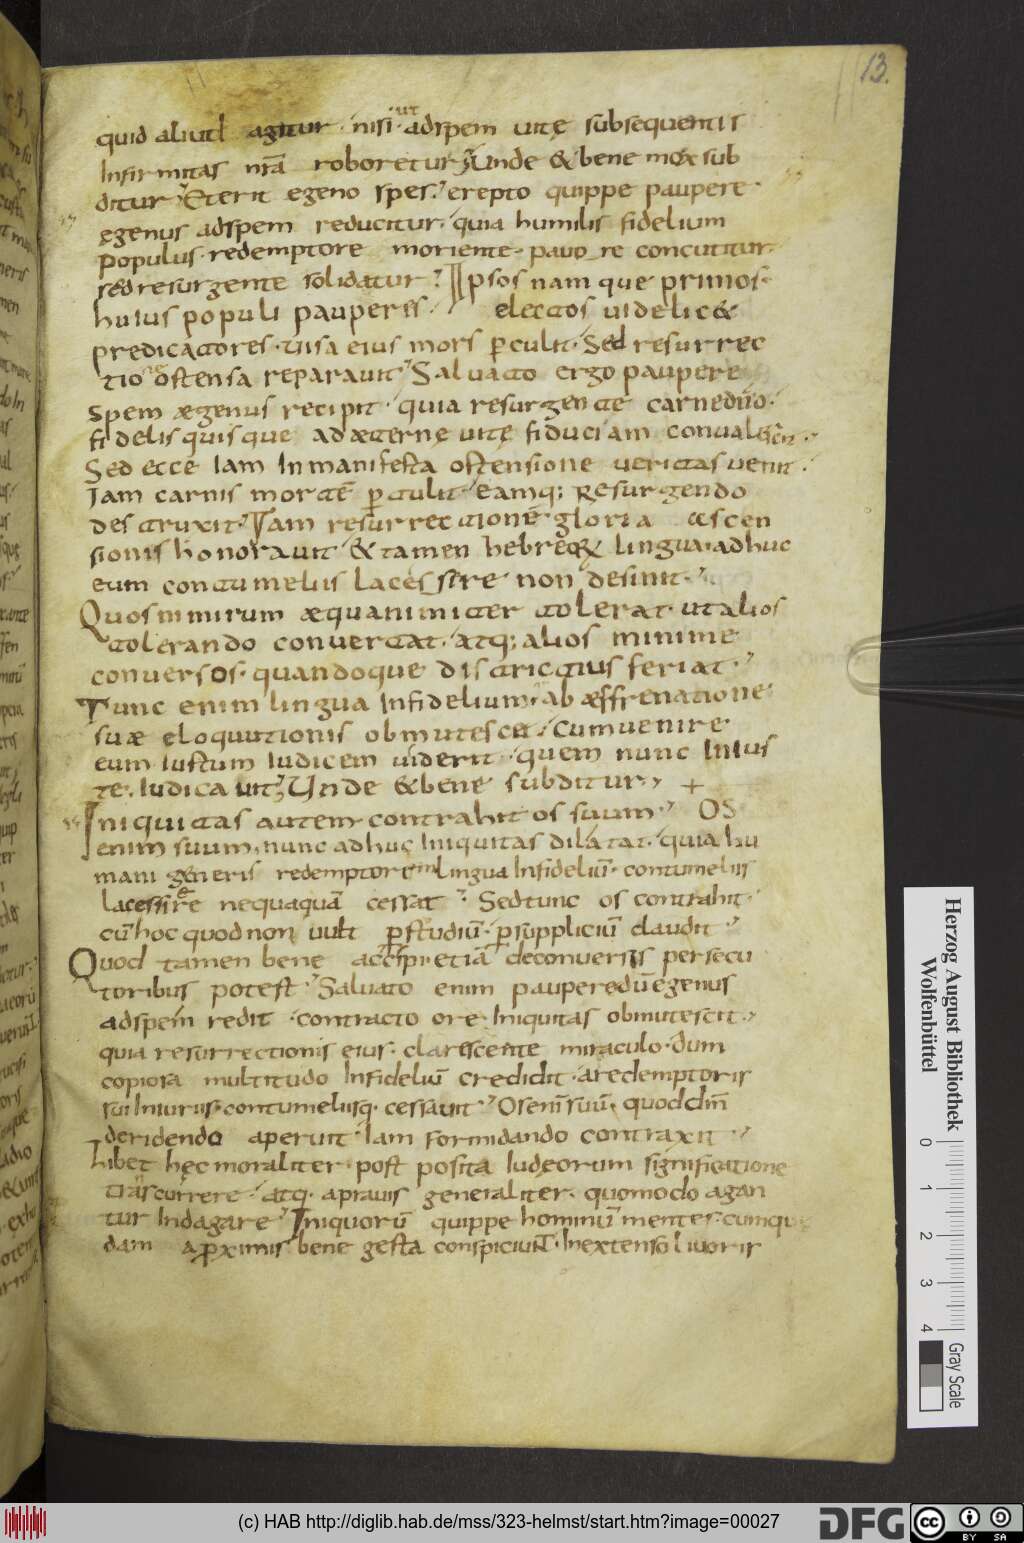 13.
quid aliud agitur · nisi ut adspem uitę subsequentis
Infirmitas nr̄a roboretur; Unde & bene mox sub
ditur; Et erit egeno spes; erepto quippe paupere ·
ęgenus adspem reducitur · quia humilis fidelium
populus · redemptore moriente · pauo re concutitur ·
sed resurgente solidatur; Ipsos nam que primos ·
huius populi pauperes · electos uidelic&
predicatores · uisa eius mors p̱culit · Sed resurrec
tio ostensa reparauit; Saluato ergo paupere
spem ægenus recipit · quia resurgente carne dn̄o ·
fidelis quisque ad æternę uitę fiduciam conualescit ·
Sed ecce Iam In manifesta ostensione ueritas uenit ·
Iam carnis mortē p̱tulit · eamq; Resurgendo
destruxit · Iam resurrectionē gloria ascen
sionis honorauit · & tamen hebreoꝝ lingua · adhuc
eum contumeliis lacessere non desinit ·
Quos nimirum æquanimiter tolerat · ut alios
tolerando conuertat · atq; alios minime
conuersos · quandoque districtius feriat ·
Tunc enim lingua Infidelium · ab æffrenatione
suæ eloquutionis obmutescit · Cum uenire ·
eum iustum Iudicem uiderit · quem nunc Inius
te · Iudicauit; Unde & bene subditur · +
Iniquitas autem contrahit os suum · OS
enim suum · nunc adhuc Iniquitas dilatat · quia hu
mani generis redemptorem lingua Infideliū · contumeliis
lacessire nequaquā cessat · Sed tunc os contrahit ·
cū hoc quod non uult p̱ studiū · p̱ suppliciū claudit ·
Quod tamen bene accipi etiā de conuersis persecu
toribus potest · Saluato enim paupere dū egenus
adspem redit · contracto ore · Iniquitas obmutescit ·
quia resurrectionis eius · clarescente miraculo · dum
copiosa multitudo Infideliū credidit · a redemptoris
sui Iniuriis · contumeliisq · cessauit; Os enī suū · quod dn̄m
deridendo aperuit · Iam formidando contraxit ·
Libet hęc moraliter · post posita Iudeorum significatione
trāscurrere · atq · a prauis generaliter · quomodo agan
tur Indagare; Iniquorū quippe hominū mentes · cumqu
dam a p̱ximis bene gesta conspiciunt · Inextenso liuoris
Herzog August Bibliothek
Wolfenbüttel
0 1 2 3 4
Gray Scale
(c) HAB http://diglib.hab.de/mss/323-helmst/start.htm?image=00027
DFG
cc BY SA